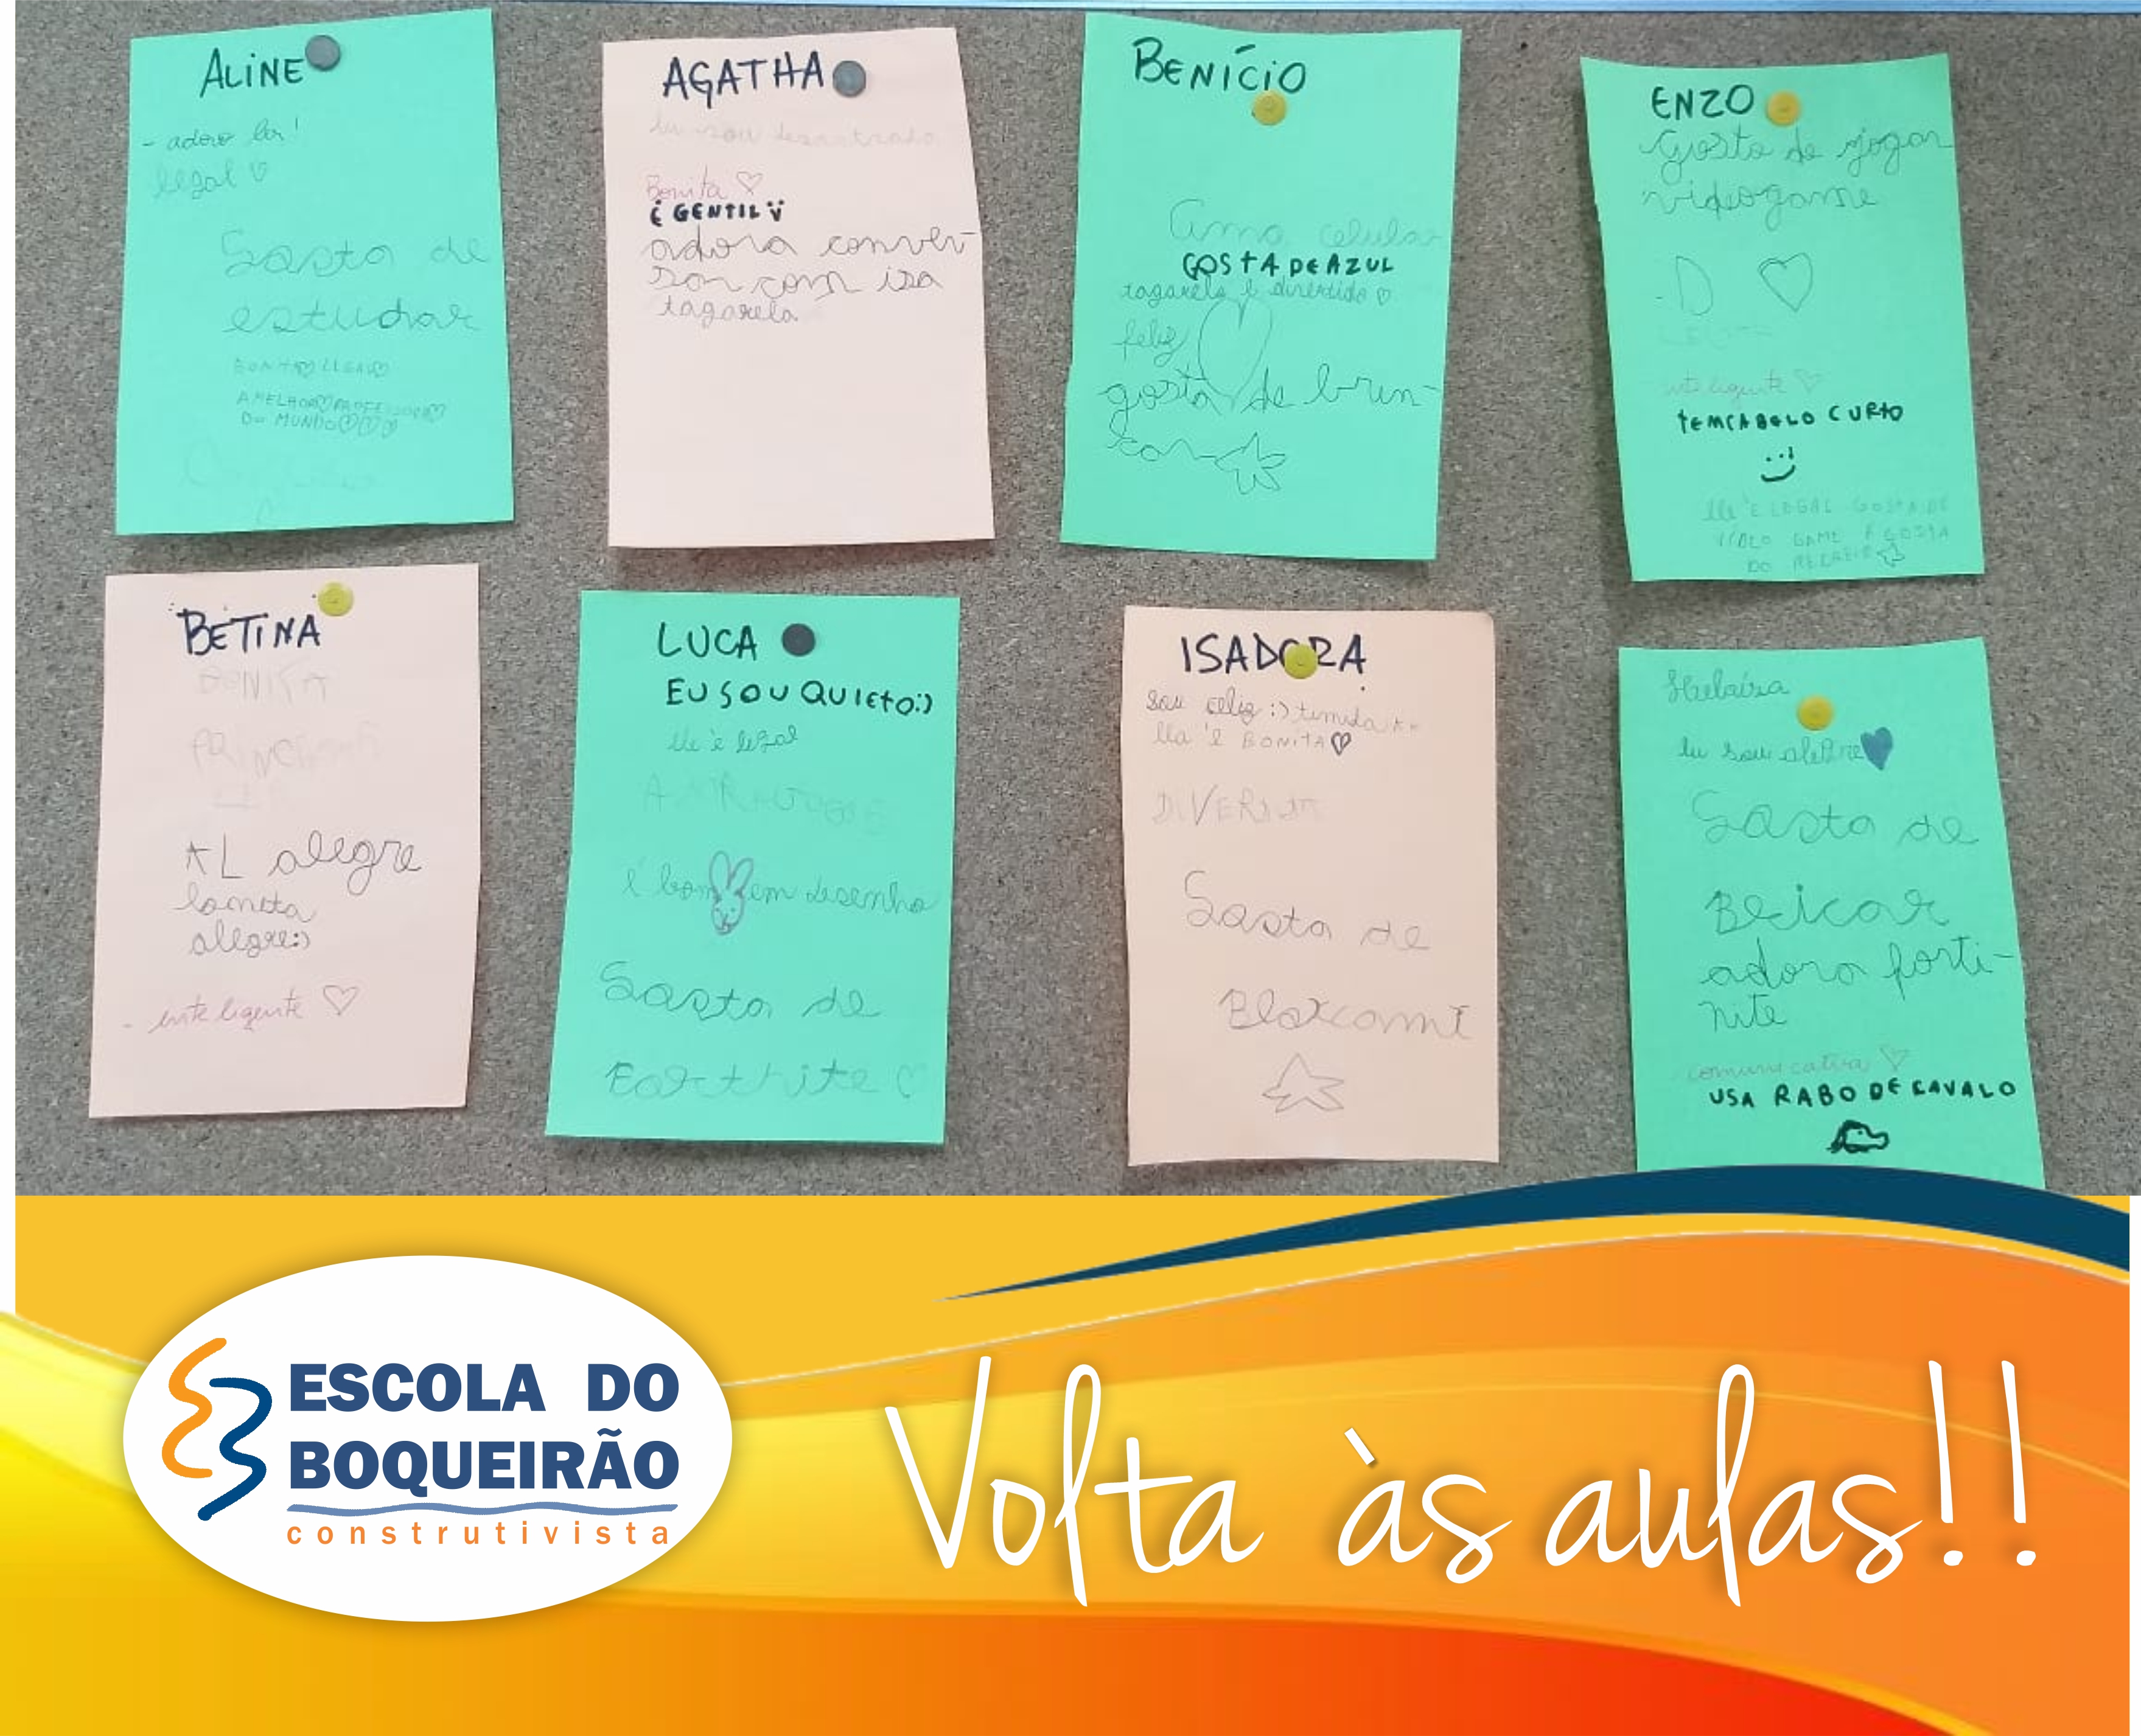 ALINE
- adoro ler!
legal
Gosto de
estudar
A MELHOR PROFESSORA
DO MUNDO
AGATHA
Eu sou desastrada
Bonita
É GENTIL
adora conver-
sar com isa
tagarela
BENÍCIO
Ama celular
GOSTA DE AZUL
tagarela e divertido
feliz
gosta de brin-
car
ENZO
Gosta de jogar
videogame
inteligente
TEM CABELO CURTO
Ele É LEGAL GOSTA DE
GAME E GOSTA
DO
BETINA
BONITA
alegre
alegre:)
- inteligente
LUCA
EU SOU QUIETO:)
Ele é legal
é bom em desenho
Gosta de
ISADORA
Sou feliz :) timida
Ela é BONITA
Gosta de
Eu sou alegre
Gosta de
adora forti-
nite
comunicativa
USA RABO DE CAVALO
ESCOLA DO
BOQUEIRÃO
construtivista
Volta às aulas!!